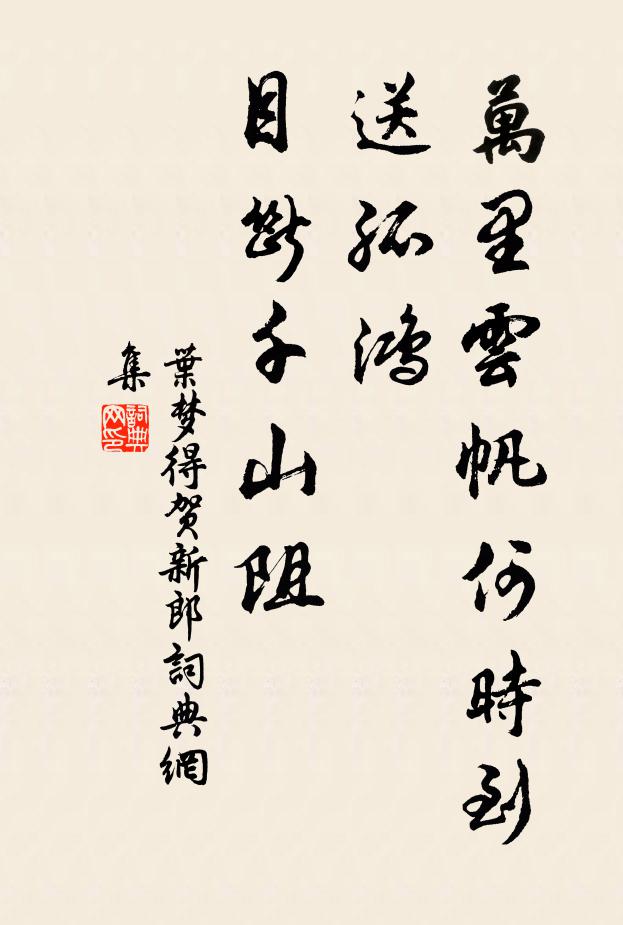 萬里雲帆何時到
送孤鴻
目斷千山阻
葉梦得贺新郎詞典網
集
詞典
网印